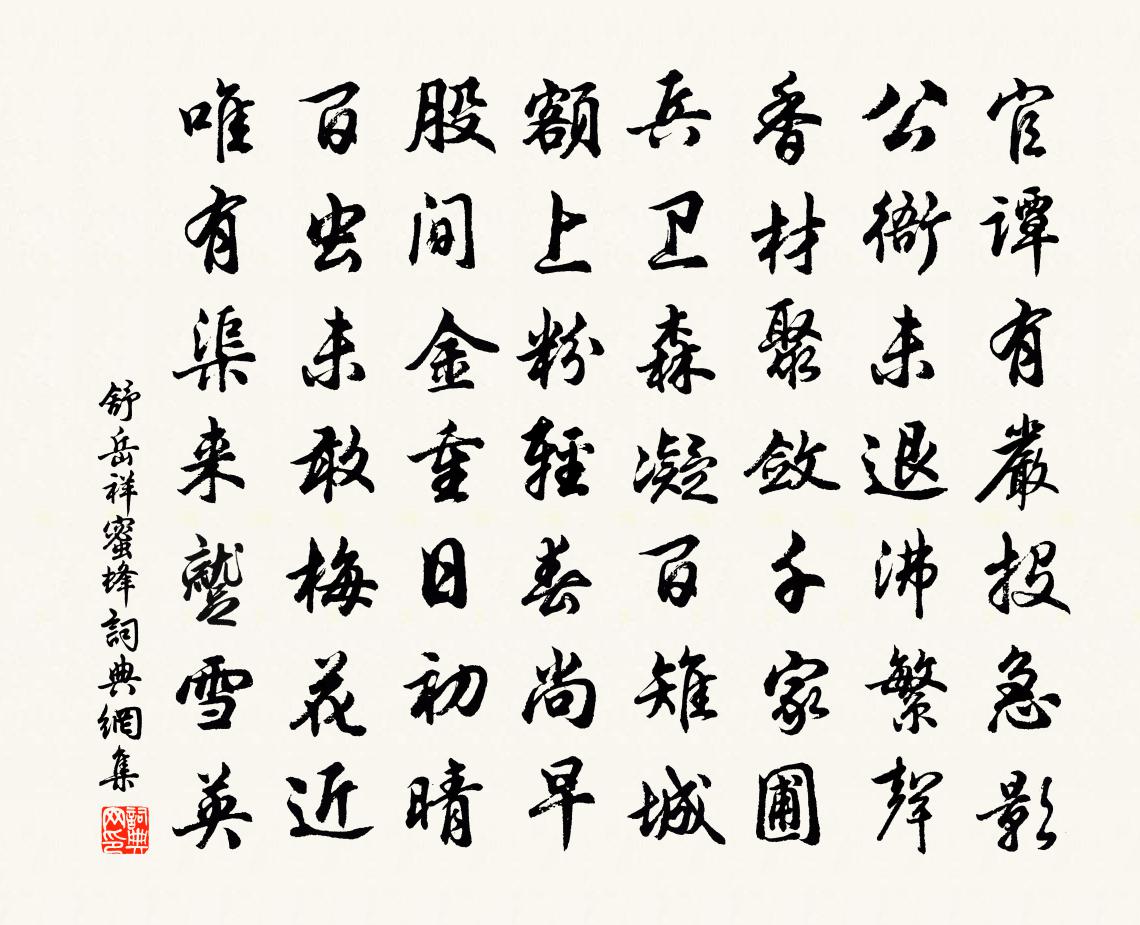 官谭有嚴投急影
公衙未退沸繁聲
香材聚斂千家圃
兵卫森凝百雉城
額上粉輕春尚早
股间金重日初晴
百虫未敢梅花近
唯有渠来蠶雪英
舒岳祥蜜蜂詞典網集
詞典网印